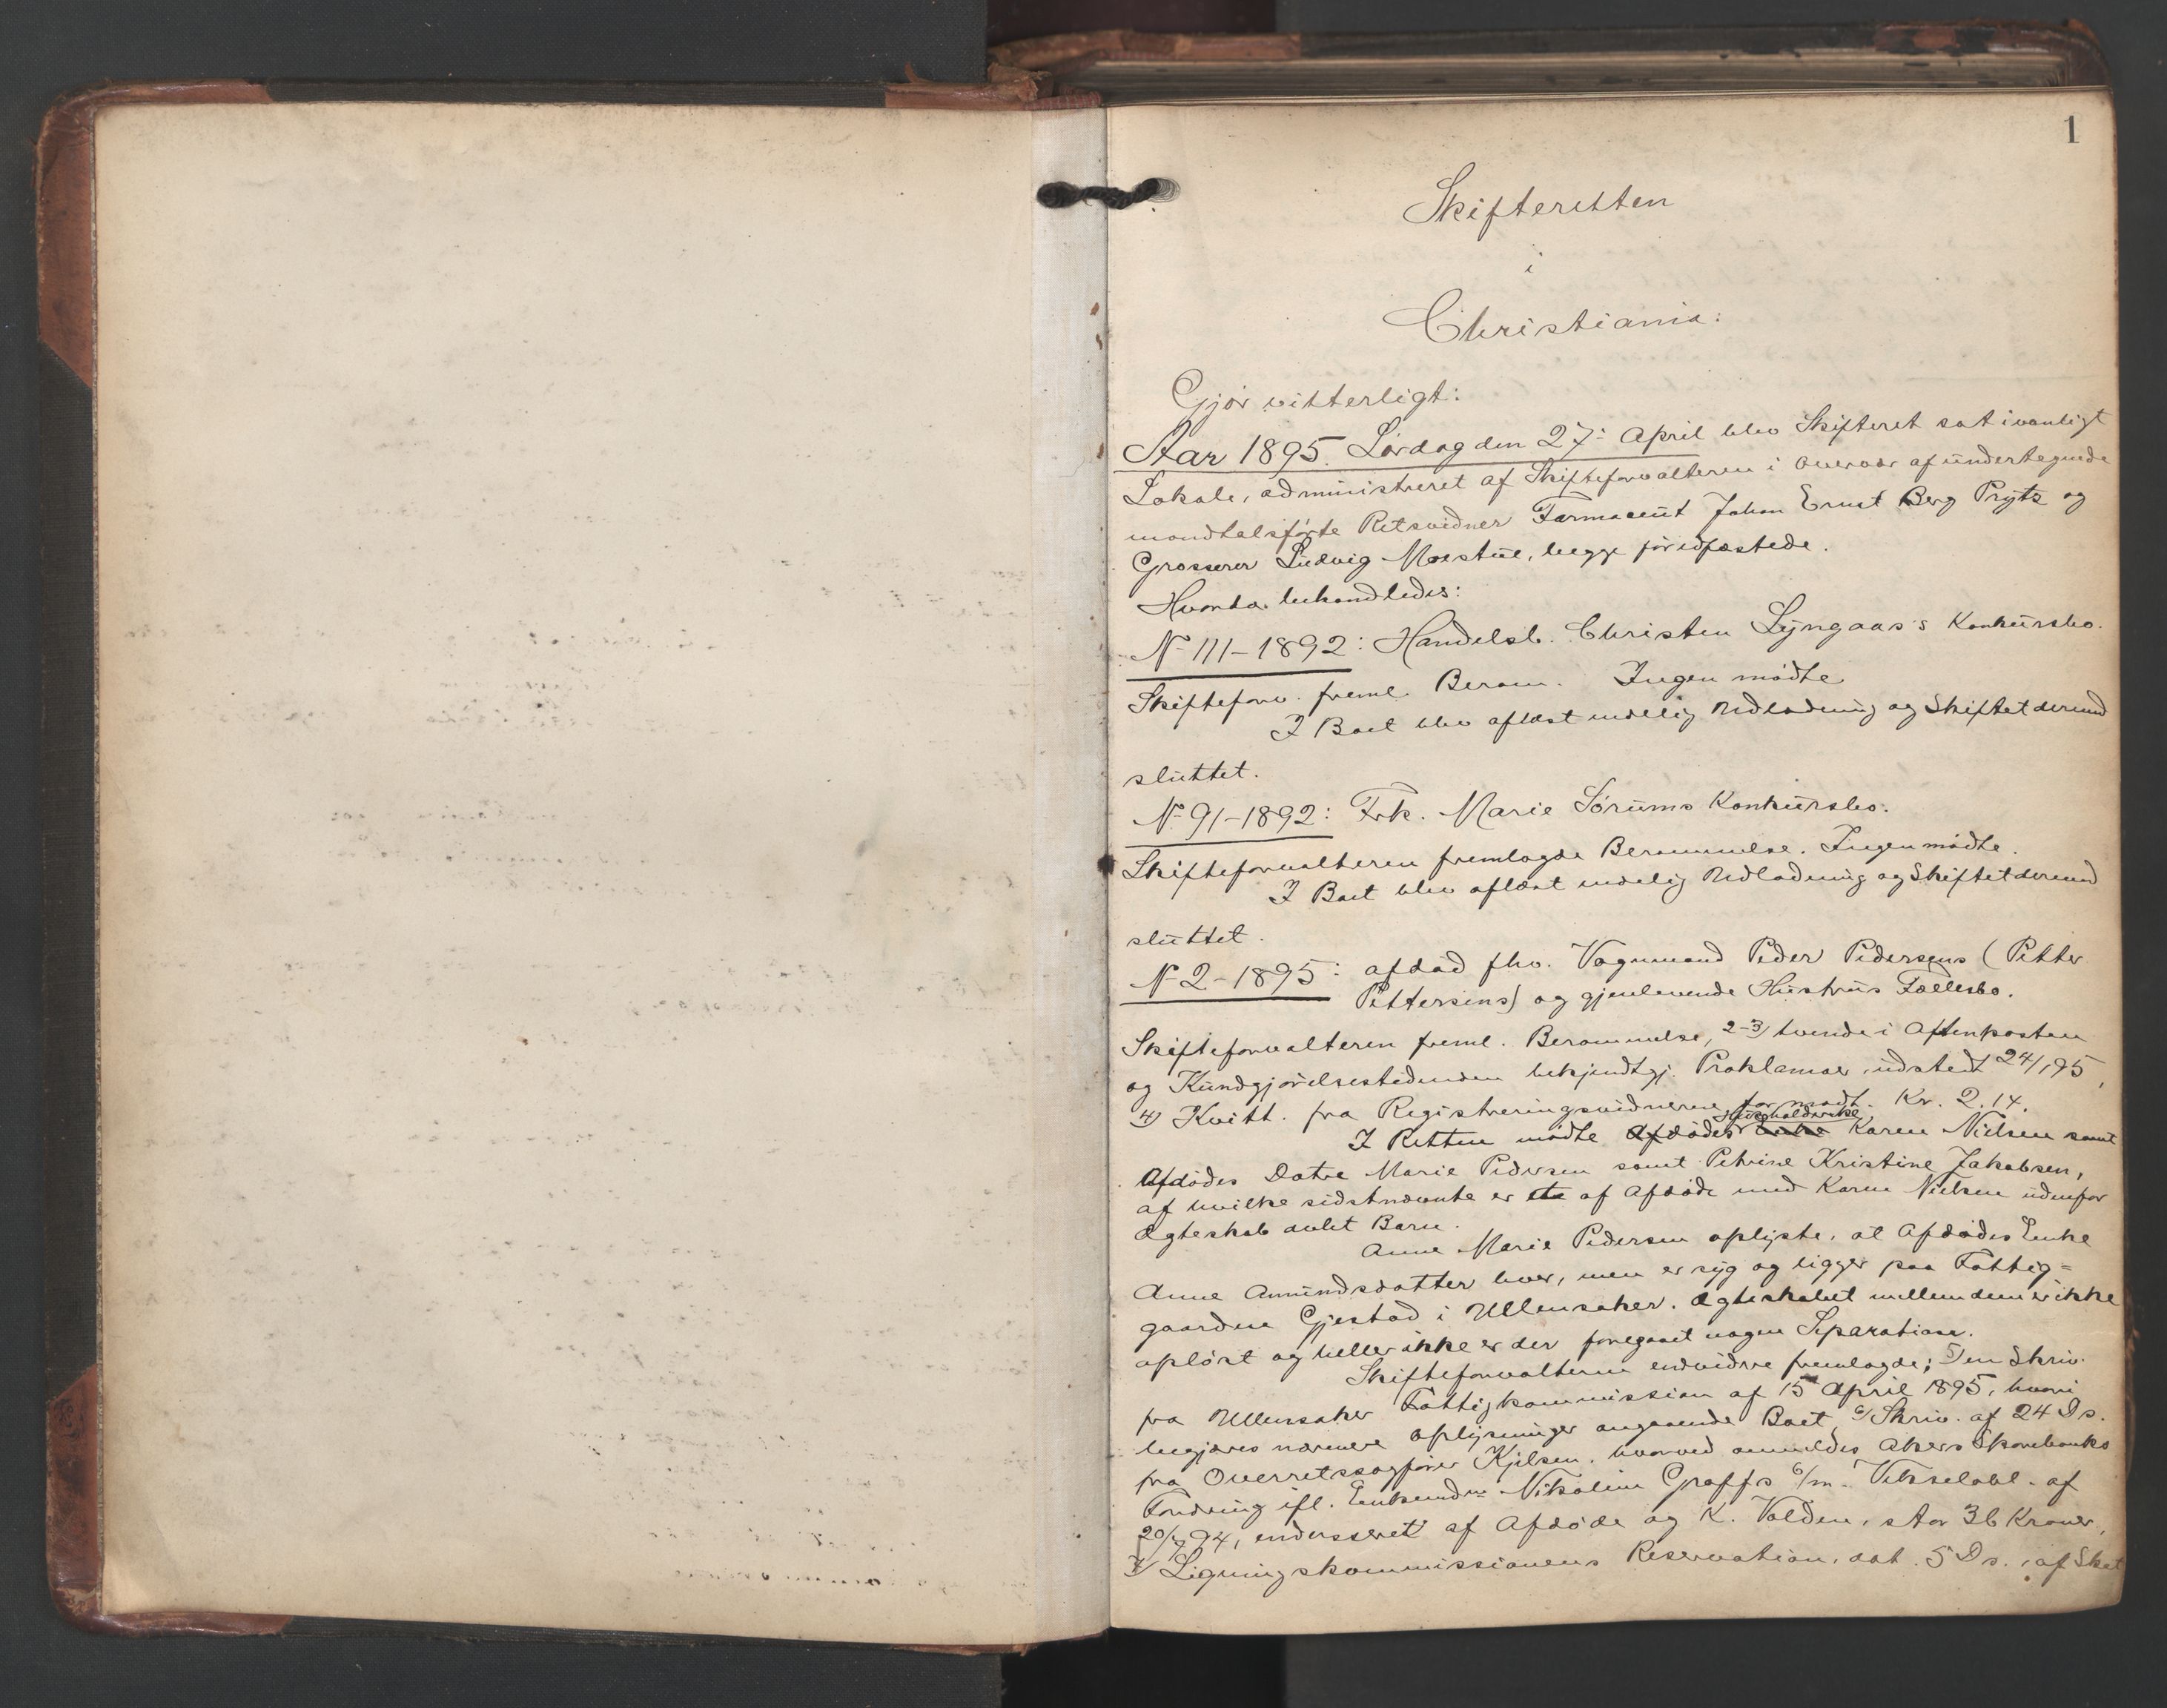 1
Skifteretten
i
Christiania:
Gjør vitterligt:
Aar 1895. Lørdag den 27: April blev Skifteret sat i vanligt
Lokale, administreret af Skifteforvalteren i Overvær af undertegnede
mandtalsførte Retsvidner Farmaceut Johan Ernst Berg Prytz og
Grosserer Ludvig Moestue, begge før edfæstede.
Hvorda behandledes:
N- 111-1892: Handelsb. Christen Lyngaas's Konkursbo.
Skifteforv. freml. Beram. Ingen mødte
I Boet blev aflæst endelig Udlodning og Skiftet dermed
sluttet.
N- 91-1892: Frk. Marie Sørums Konkursbo.
Skifteforvalteren fremlagde Berammelse. Ingen mødte.
I Boet blev aflæst endelig Udlodning og Skiftet dermed
sluttet.
N- 2-1895: afdød fhv. Vognmand Peder Pedersens (Petter
Pettersens) og gjenlevende Hustrus Fællesbo.
Skifteforvalteren freml. Berammelse, 2-3) tvende i Aftenposten
og Kundgjørelsestidenden bekjendtgj. Proklamaer, udstedt 24/1 95,
4) Kvitt. fra Registreringsvidnerne for modt. Kr. 2.14.
Husholderske
I Retten mødte Afdødes Enke Karen Nielsen samt
Afdødes Datre Marie Pedersen samt Petrine Kristine Jakobsen,
af hvilke sidstnævnte er et af Afdøde med Karen Nielsen udenfor
Ægteskab avlet Barn.
Anne Marie Pedersen oplyste, at Afdødes Enke
Anne Amundsdatter lever, men er syg og ligger paa Fattig=
gaarden Gjestad i Ullensaker. Ægteskabet mellem dem er ikke
opløst og heller ikke er der foregaaet nogen Separation.
Skifteforvalteren endvidere fremlagde; 5) en Skriv.
fra Ullensaker Fattigkommission af 15 April 1895, hvori
begjæres nærmere Oplysninger angaaende Boet, 6) Skriv. af 24 Ds.
fra Overretssagfører Kjelsen, hvorved anmeldes Akers Sparebanks
Fordring ifl. Enkemadme Nikoline Graffs 6/m. Vekselobl. af
20/7 94, endosseret af Afdøde og K. Volden, stor 36 Kroner,
7) Ligningskommissionens Reservation, dat. 5 Ds., af Skat